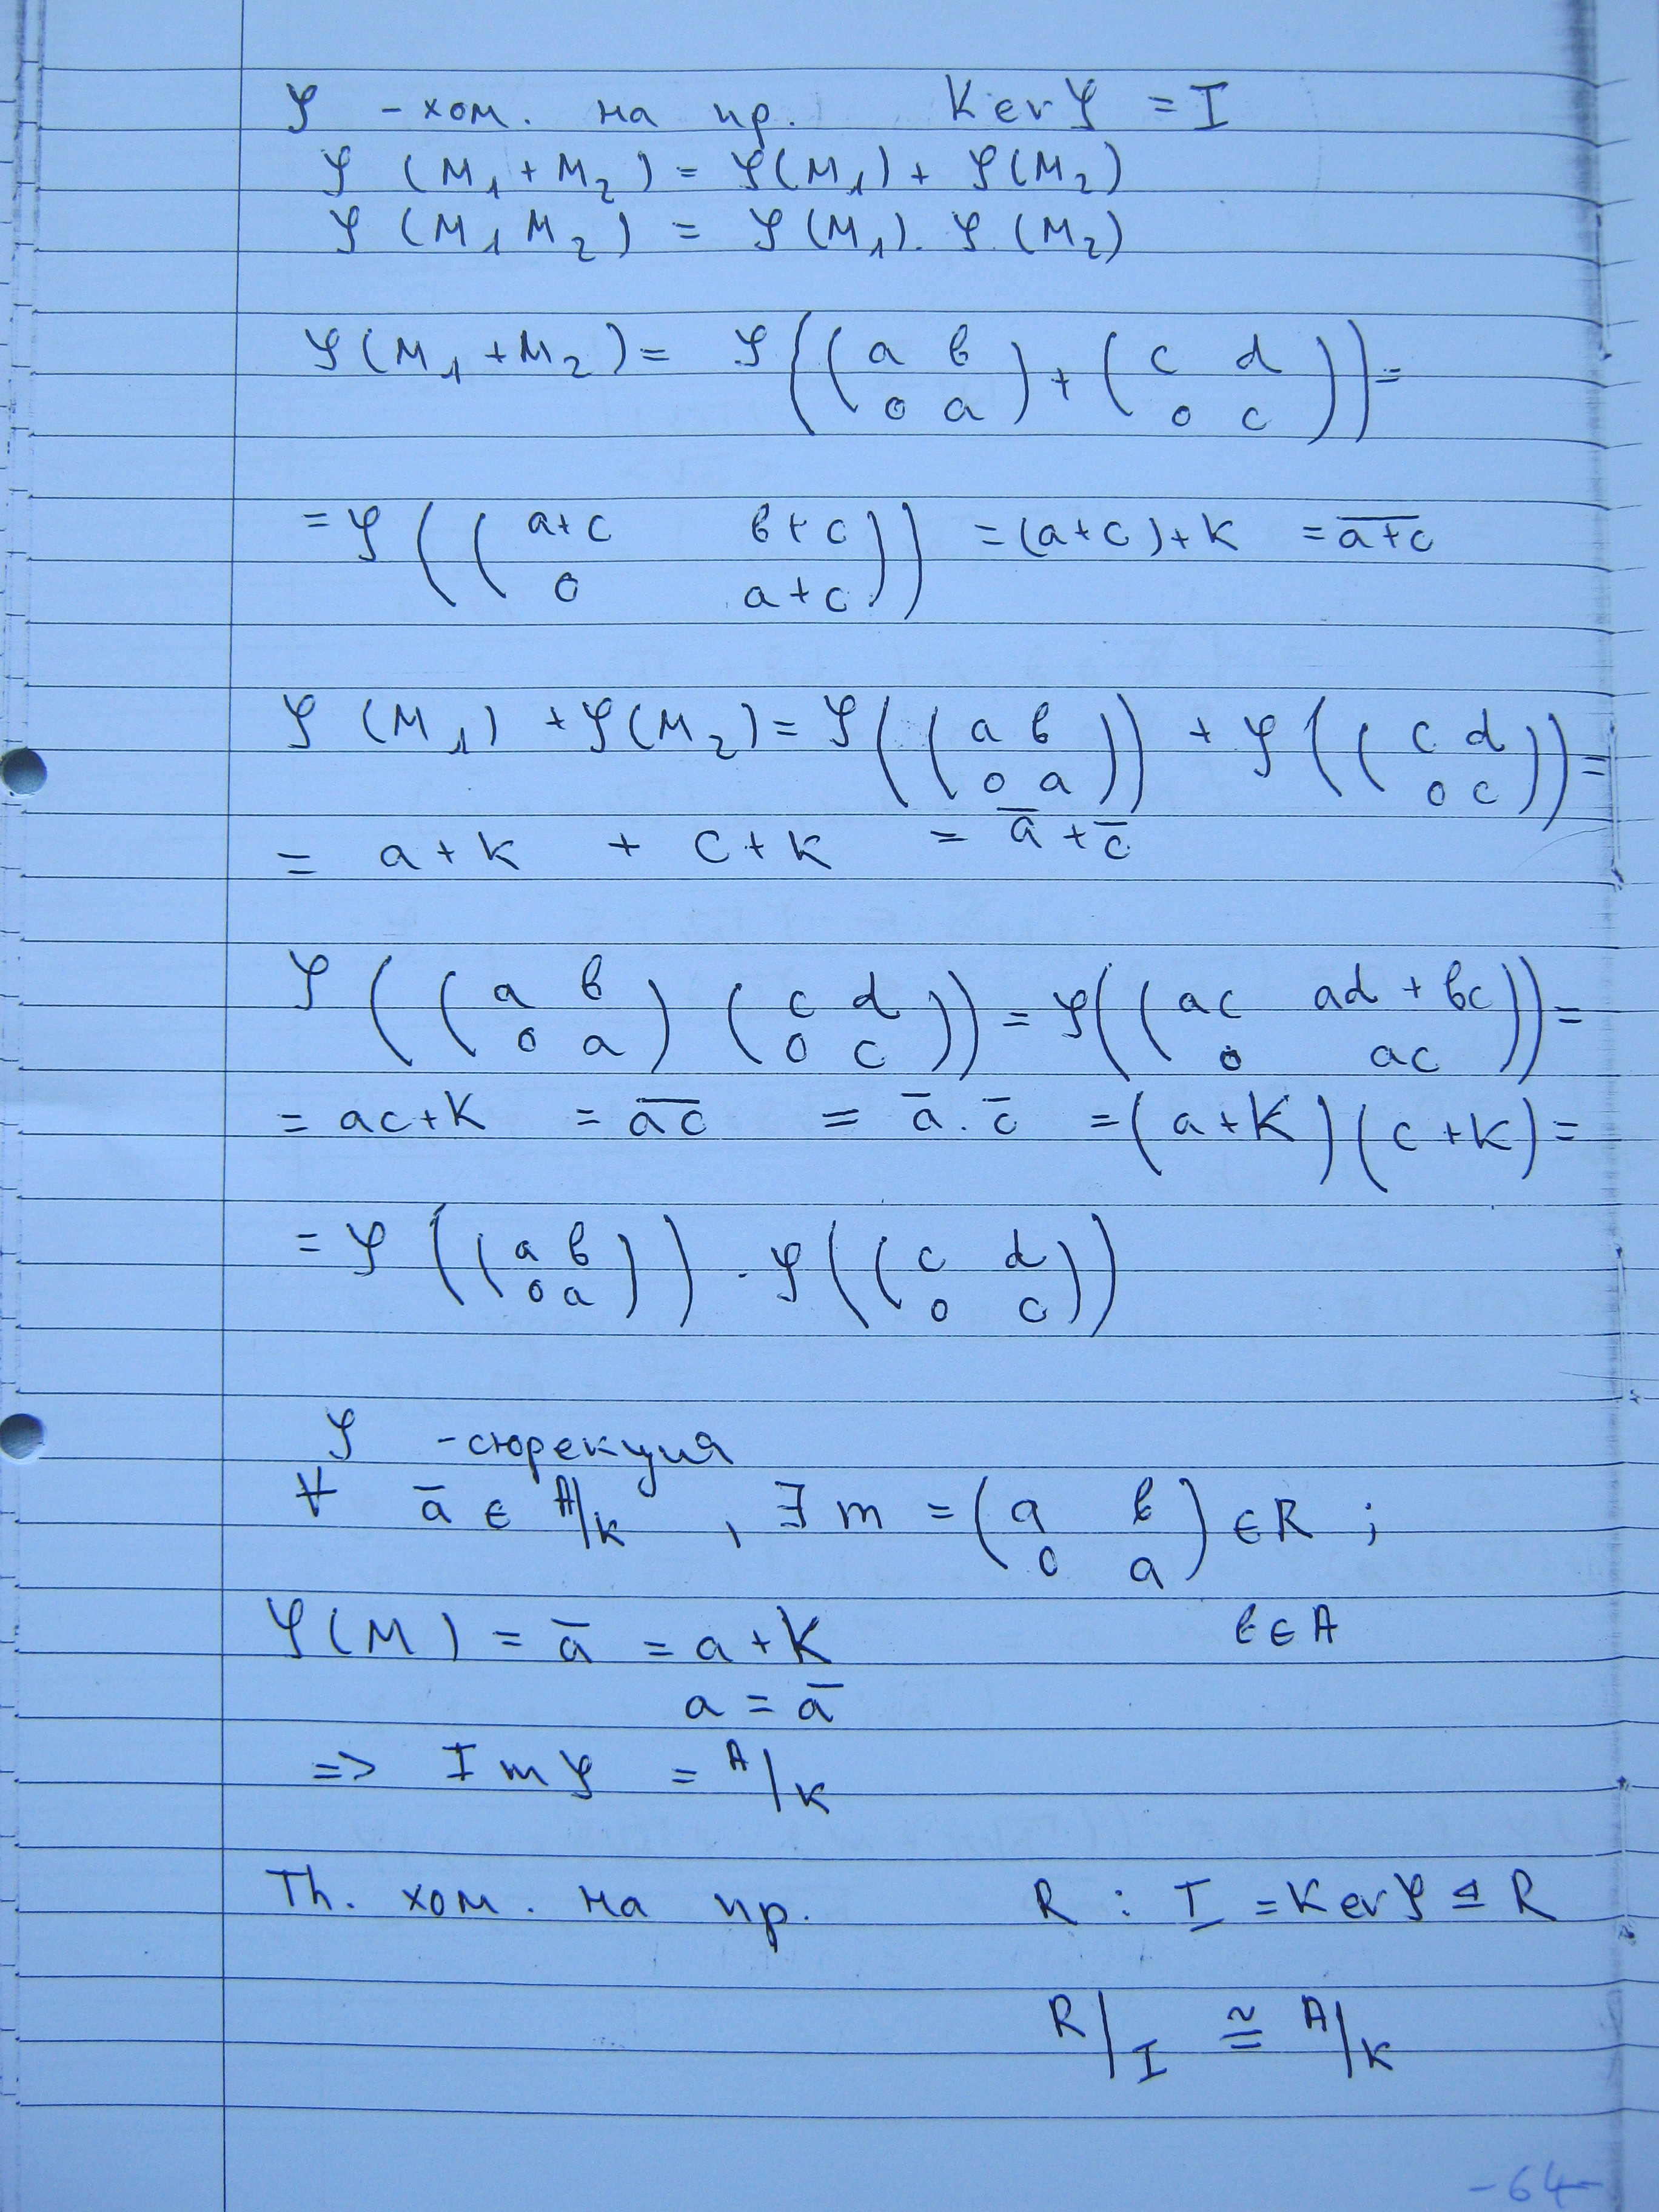 φ - хом. на пр. Ker φ = I
φ (M₁ + M₂) = φ(M₁) + φ(M₂)
φ (M₁ M₂) = φ(M₁). φ(M₂)
φ(M₁ + M₂) = φ((a в
0 a) + (c d
0 c)) =
= φ((a+c в+c
0 a+c)) = (a+c)+K = a̅+̅c̅
φ (M₁) + φ(M₂) = φ((a в
0 a)) + φ((c d
0 c)) =
= a+K + c+K = a̅ + c̅
φ((a в
0 a) (c d
0 c)) = φ((ac ad + вc
0 ac)) =
= ac+K = a̅c̅ = a̅ . c̅ = (a+K)(c+K) =
= φ((a в
0 a)) . φ((c d
0 c))
φ - сюрекция
∀ a̅ ∈ A/K , ∃ m = (a в
0 a) ∈ R ;
φ(M) = a̅ = a + K в ∈ A
a = a̅
=> Im φ = A/K
Th. хом. на пр. R : I = Ker φ ⊴ R
R/I ≅ A/K
-64-